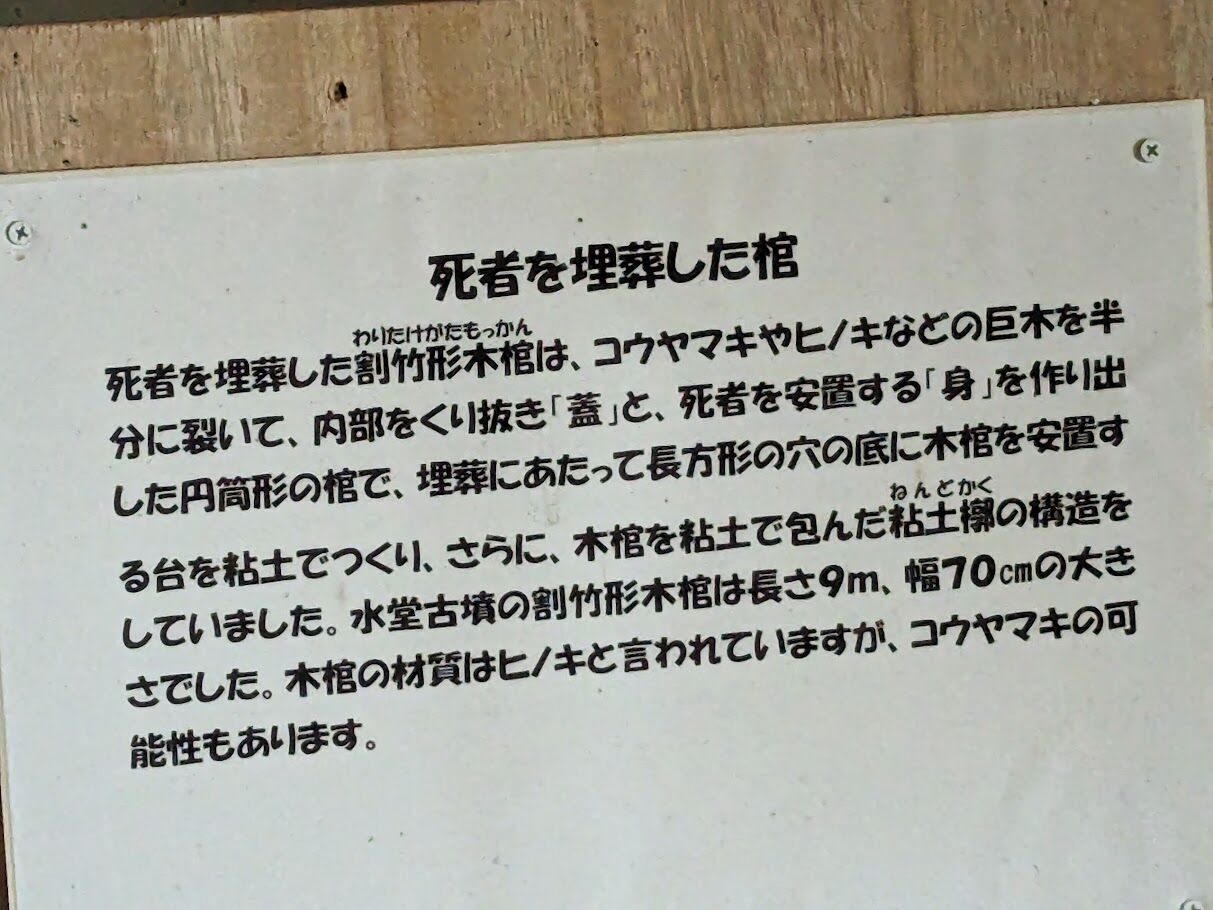 死者を埋葬した棺
わりたけがたもっかん
死者を埋葬した割竹形木棺は、コウヤマキやヒノキなどの巨木を半
分に裂いて、内部をくり抜き「蓋」と、死者を安置する「身」を作り出
した円筒形の棺で、埋葬にあたって長方形の穴の底に木棺を安置す
ねんどかく
る台を粘土でつくり、さらに、木棺を粘土で包んだ粘土槨の構造を
していました。水堂古墳の割竹形木棺は長さ9m、幅70㎝の大き
さでした。木棺の材質はヒノキと言われていますが、コウヤマキの可
能性もあります。